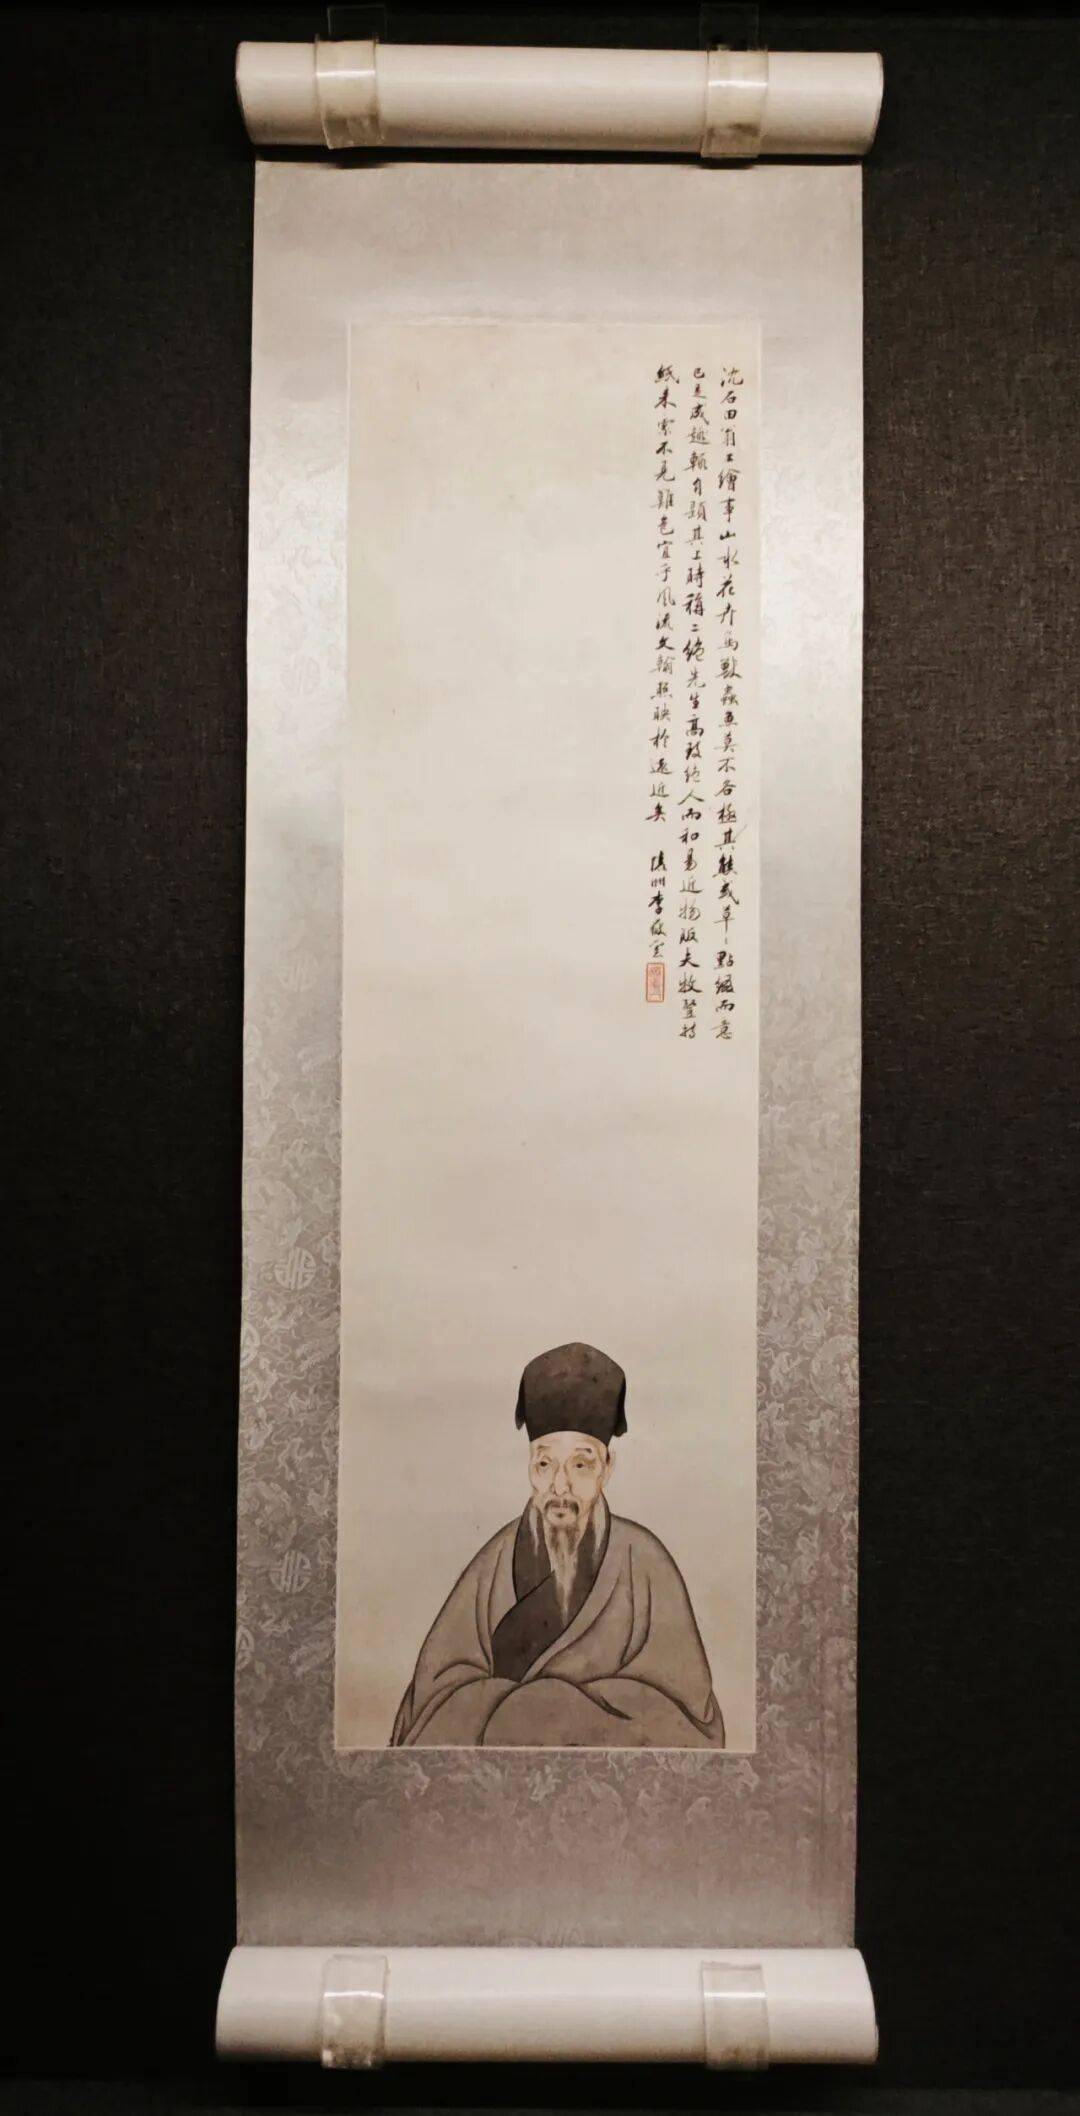 沈石田翁工繪事山水花卉鳥獸蟲魚莫不各極其態或草〻點綴而意
已足成趣輒自題其上時稱二絕先生高致絕人而和易近物販夫牧豎持
紙來索不見難色宜乎風流文翰照映於遠近矣 李